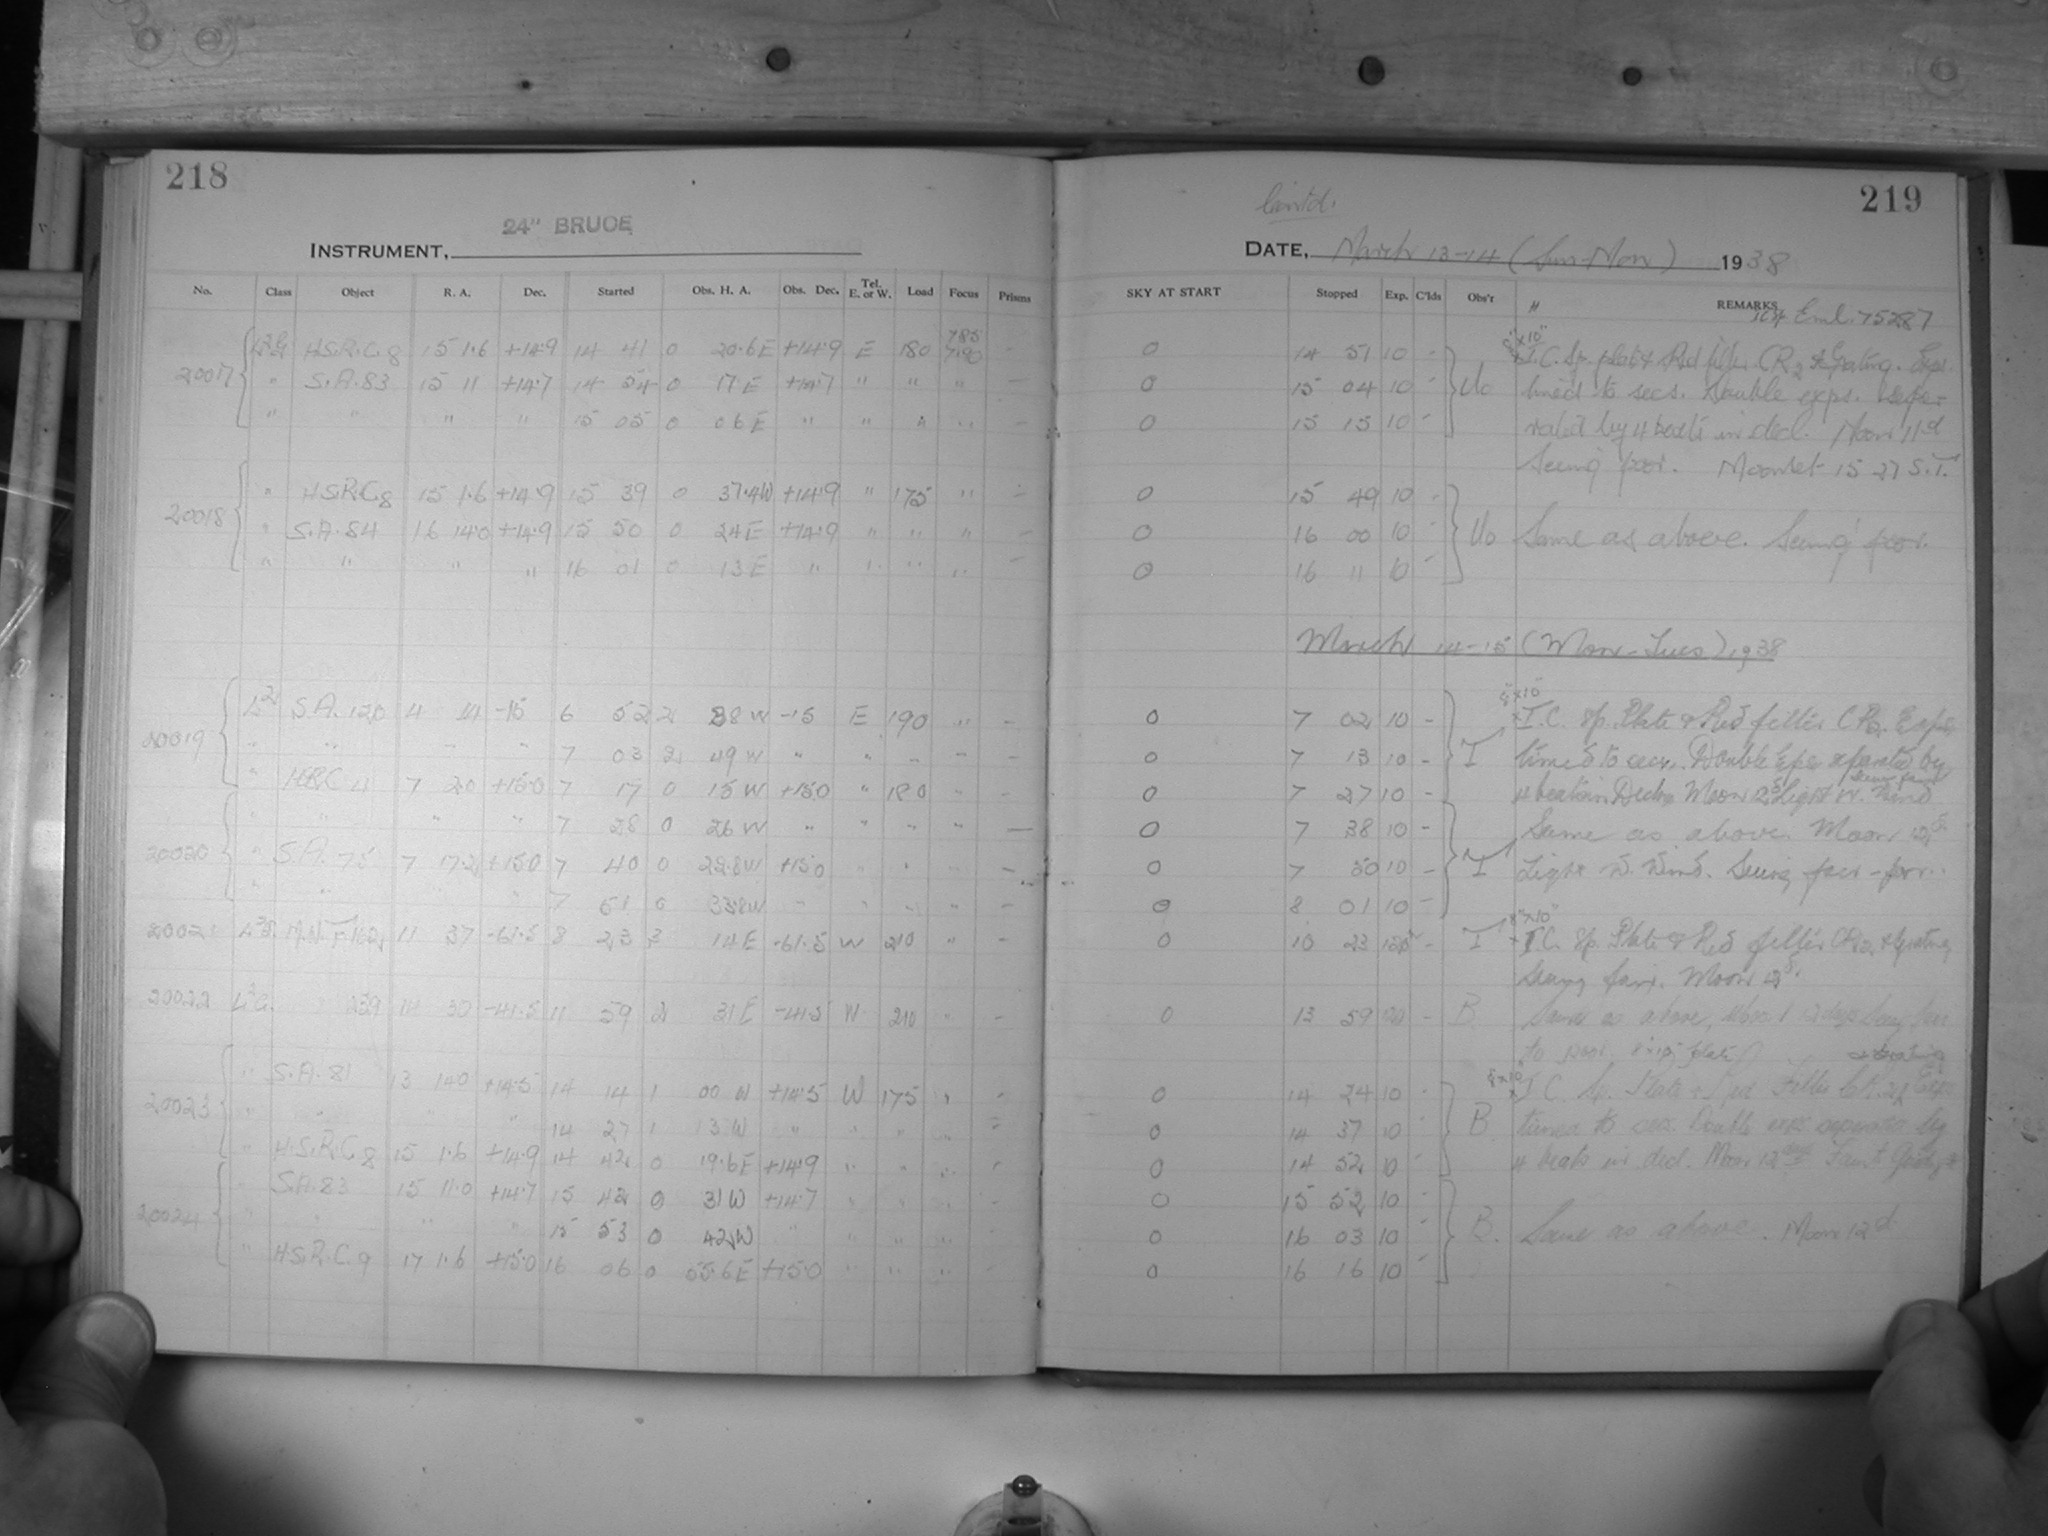 218
24" BRUCE
INSTRUMENT,
No. Class Object R. A. Dec. Started Obs. H. A. Obs. Dec. Tel. E. or W. Load Focus Prisms
20017 H.S.R.C. 8 15 1.6 +14.9 14 41 0 20.6 E +14.9 E 180 785 790 -
" S.A. 83 15 11 +14.7 14 54 0 17 E +14.7 " " " -
" " " " 15 05 0 06 E " " " " -
20018 " H.S.R.C. 8 15 1.6 +14.9 15 39 0 37.4W +14.9 " 175 " -
" S.A. 84 16 14.0 +14.9 15 50 0 24 E +14.9 " " " -
" " " " 16 01 0 13 E " " " "
20019 S.A. 120 4 14 -15 6 52 2 38 W -15 E 190 " -
" " " " 7 03 2 49 W " " " " -
" HSRC 4 7 20 +15.0 7 17 0 15 W +15.0 " 180 " -
20020 " " " " 7 28 0 26 W " " " " -
" S.A. 75 7 17.2 +15.0 7 40 0 22.8W +15.0 " " " -
" " " " 7 51 0 33.8W " " " " -
20021 M.W.F 162 11 37 -61.5 8 23 3 14 E -61.5 W 210 " -
20022 239 14 30 -41.5 11 59 2 31 E -41.5 W 210 " -
20023 " S.A. 81 13 14.0 +14.5 14 14 1 00 W +14.5 W 175 " "
" " " 14 27 1 13 W " " " "
" H.S.R.C. 8 15 1.6 +14.9 14 42 0 19.6 E +14.9 " " " "
20024 " S.A. 83 15 11.0 +14.7 15 42 0 31 W +14.7 " " "
" " " " 15 53 0 42 W " " " "
" H.S.R.C. 9 17 1.6 +15.0 16 06 0 55.6 E +15.0 " " "
219
Contd.
DATE, March 13-14 (Sun-Mon) 1938
SKY AT START Stopped Exp. C'lds Obs'r REMARKS
Eml. 75287
0 14 51 10 - I.C. Sp. plate & Red filter CR2 & Grating. Exps.
0 15 04 10 - Uo timed to secs. Double exps. sepa-
0 15 15 10 - rated by 4 beats in decl. Moon 11d
Seeing poor. Moonset 15 27 S.T.
0 15 49 10 -
0 16 00 10 - Uo Same as above. Seeing poor.
0 16 11 10 -
March 14-15 (Mon-Tues) 1938
8"x10"
0 7 02 10 - I.C. Sp. Plate & Red filter CR2. Exps.
0 7 13 10 - T timed to secs. Double Exps separated by
0 7 27 10 - 4 beats in Decln Moon 12d Light W. Wind
0 7 38 10 - Same as above. Moon 12d
0 7 50 10 - T Light W. Wind. Seeing fair-poor.
0 8 01 10 -
8"x10"
0 10 23 120 - T I.C. Sp. Plate & Red filter CR2 & Grating
Seeing fair. Moon 12d.
0 13 59 - B. Same as above, Moon 12 days Seeing fair
to poor. 8x10 plate
8"x10" & Grating
0 14 24 10 - I.C. Sp. Plate & Red Filter CR2 Exps
0 14 37 10 B. timed to secs. Double exps separated by
0 14 52 10 - 4 beats in decl. Moon 12 days
0 15 52 10 -
0 16 03 10 - B. Same as above. Moon 12d
0 16 16 10 -